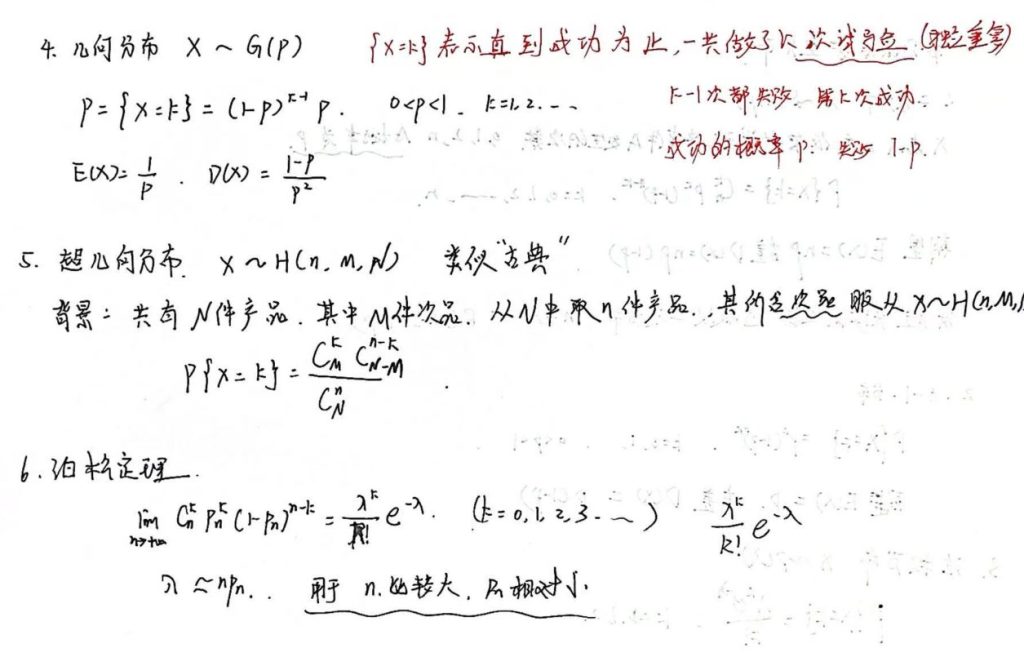 4. 几何分布 X ~ G(p) {X=k}表示直到成功为止,一共做了k次试验 (独立重复)
P={X=k}=(1-p)^{k-1}p. 0<p<1. k=1.2.... k-1次都失败 第k次成功
成功的概率p. 失败 1-p.
E(X)=\frac{1}{p}. D(X)=\frac{1-p}{p^2}
5. 超几何分布. X~H(n,M,N) 类似“古典”
背景:共有N件产品.其中M件次品.从N中取n件产品.,其所含次品 服从X~H(n,M,
P{X=k}=\frac{C_M^k C_{N-M}^{n-k}}{C_N^n}.
6.泊松定理.
\lim_{n→+∞} C_n^k p_n^k (1-p_n)^{n-k}=\frac{λ^k}{k!}e^{-λ}. (k=0,1,2,3...) \frac{λ^k}{k!}e^{-λ}
λ≈np_n.. 用于n.比较大. 相对小.